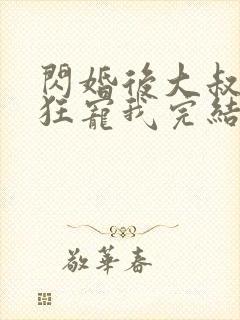 閃婚後大叔
狂寵我完結
敬華春